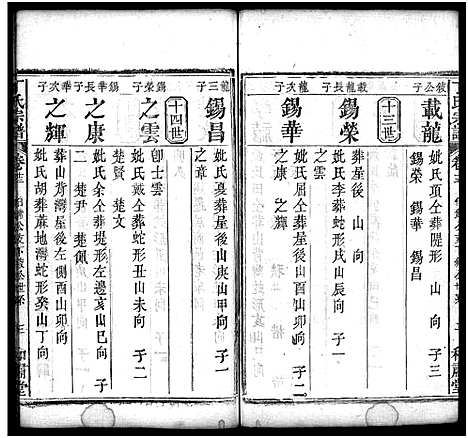 載龍
妣氏項仝葬隄形 山 向 子三
錫榮 錫華 錫昌
十三世
載龍長子
錫榮
葬屋後 山 向
妣氏李葬蛇形戌山辰向 子一
之雲
龍次子
錫華
妣氏屈仝葬屋後山酉山卯向 子二
之康 之輝
龍三子
錫昌
妣氏夏葬屋後山庚山甲向 子一
之章
十四世
錫榮子
之雲
卽士雲
妣氏戴仝葬蛇形丑山未向 子二
楚賢 楚文
錫華長子
之康
妣氏余仝葬堤形左邊亥山巳向 子二
楚尹 楚佩
華次子
之輝
葬山背灣屋後左側酉山卯向
妣氏胡葬蔴地灣蛇形癸山丁向 子一
丁氏宗譜
三